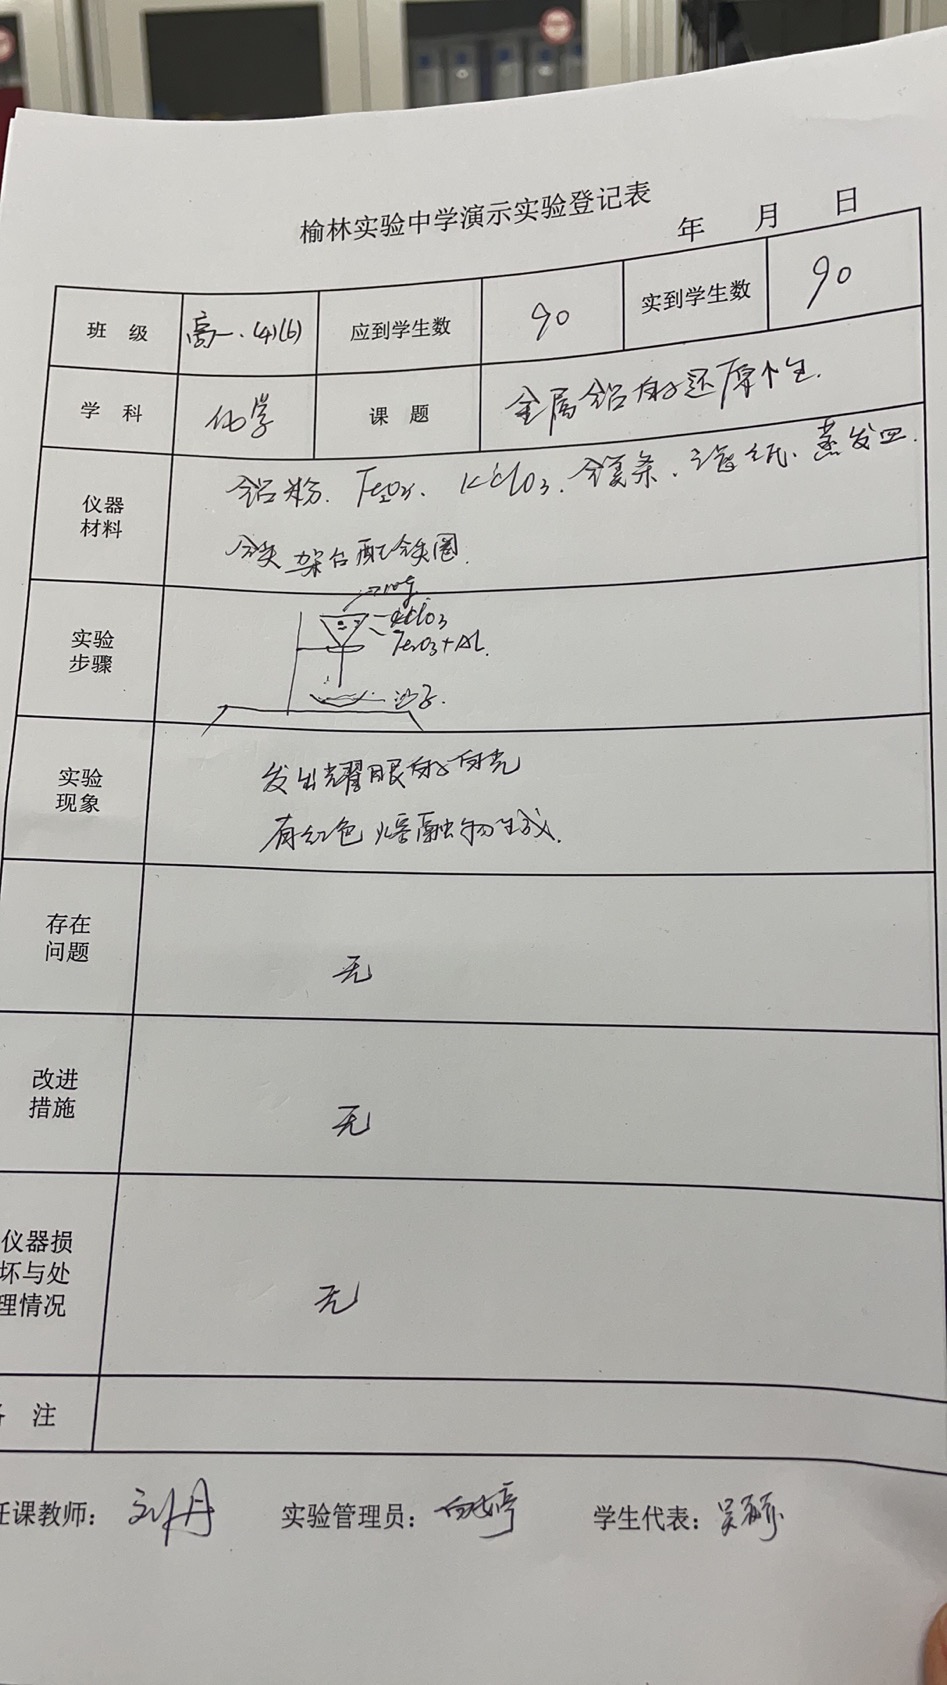 榆林实验中学演示实验登记表
年 月 日
班 级 高一.(4)(6) 应到学生数 90 实到学生数 90
学 科 化学 课 题 金属铝的还原性.
仪器 材料 铝粉. Fe2O3. KClO3. 镁条. 滤纸. 蒸发皿.
铁架台配铁圈.
实验 步骤
→Mg
KClO3
Fe2O3+Al.
沙子.
实验 现象 发出耀眼的白光
有红色熔融物生成.
存在 问题 无
改进 措施 无
仪器损
坏与处
理情况
无
注
任课教师: 刘丹 实验管理员: 婷 学生代表: 吴